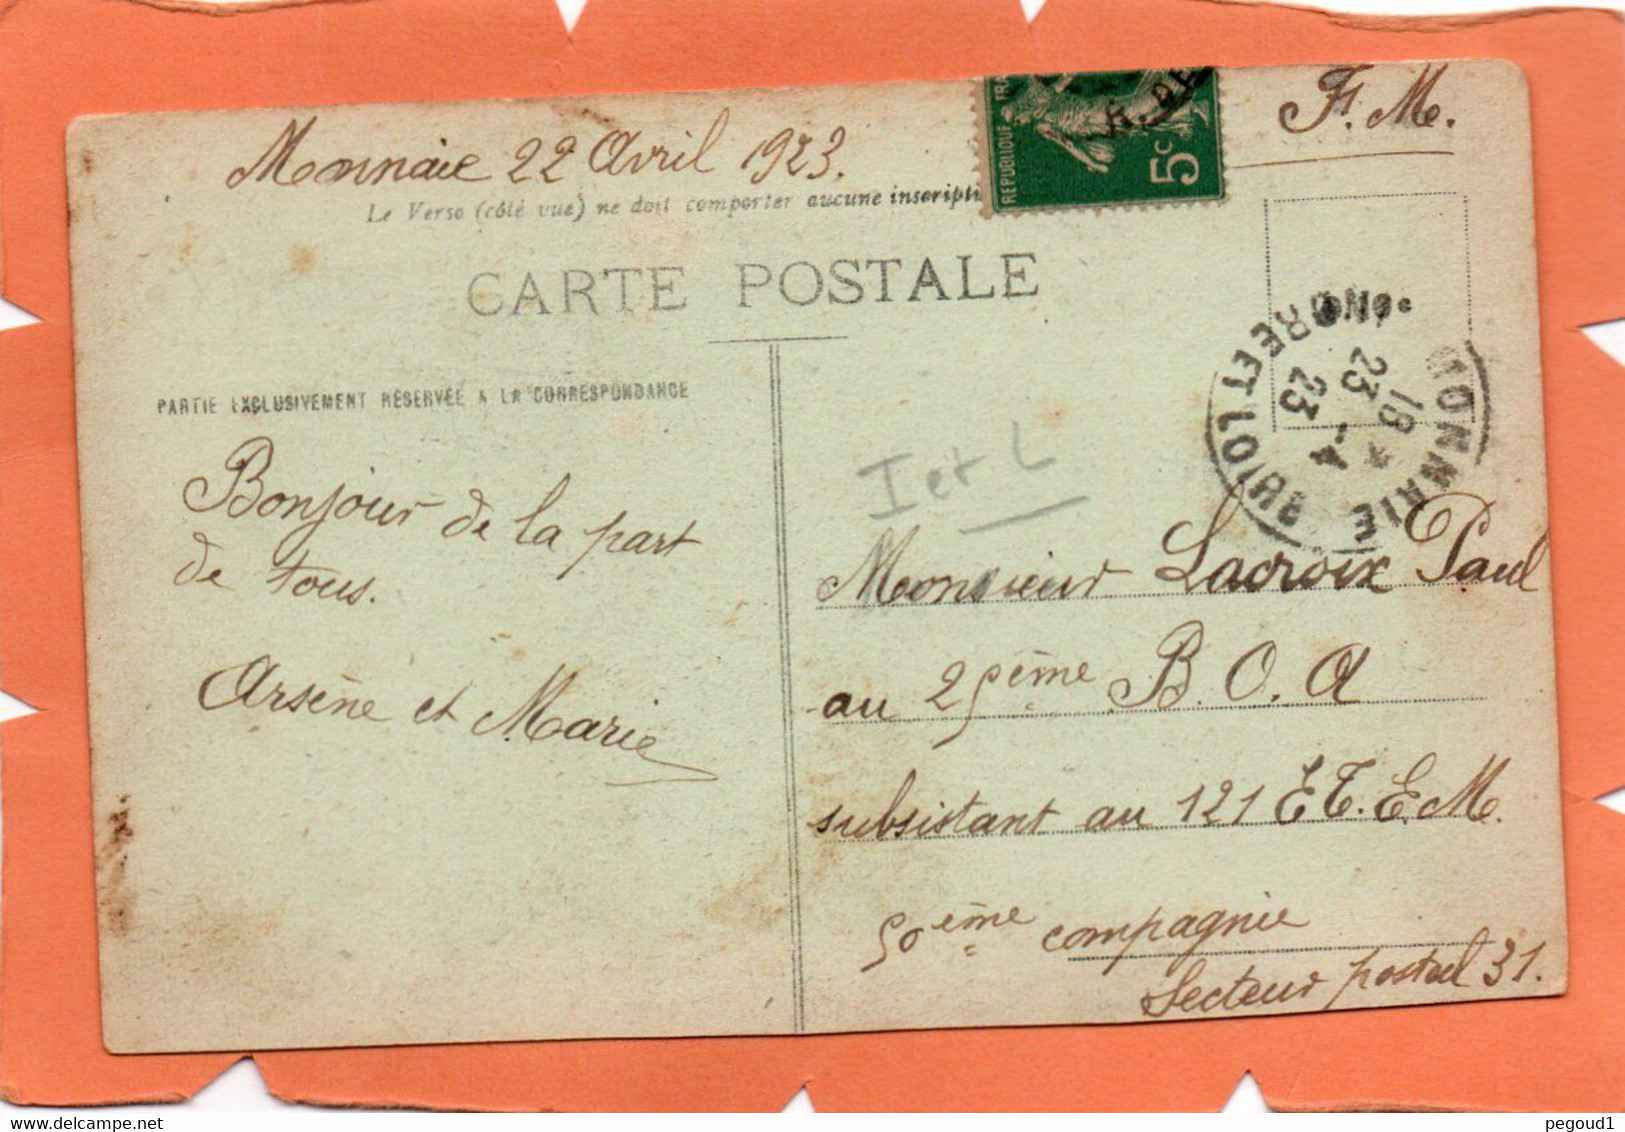 Monnaie 22 Avril 1923.
F. M.
Le Verso (côté vue) ne doit comporter aucune inscripti
REPUBLIQUE FRA
5c
CARTE POSTALE
PARTIE EXCLUSIVEMENT RÉSERVÉE A LA CORRESPONDANCE
MONNAIE
18 *
23 -4
23
INDRE ET LOIRE
Bonjour de la part
de tous.
Arsène et Marie
I et L
Monsieur Lacroix Paul
au 25ème B. O. A
subsistant au 121 E T. E. M.
50ème compagnie
Secteur postal 31.
delcampe.net
pegoud1